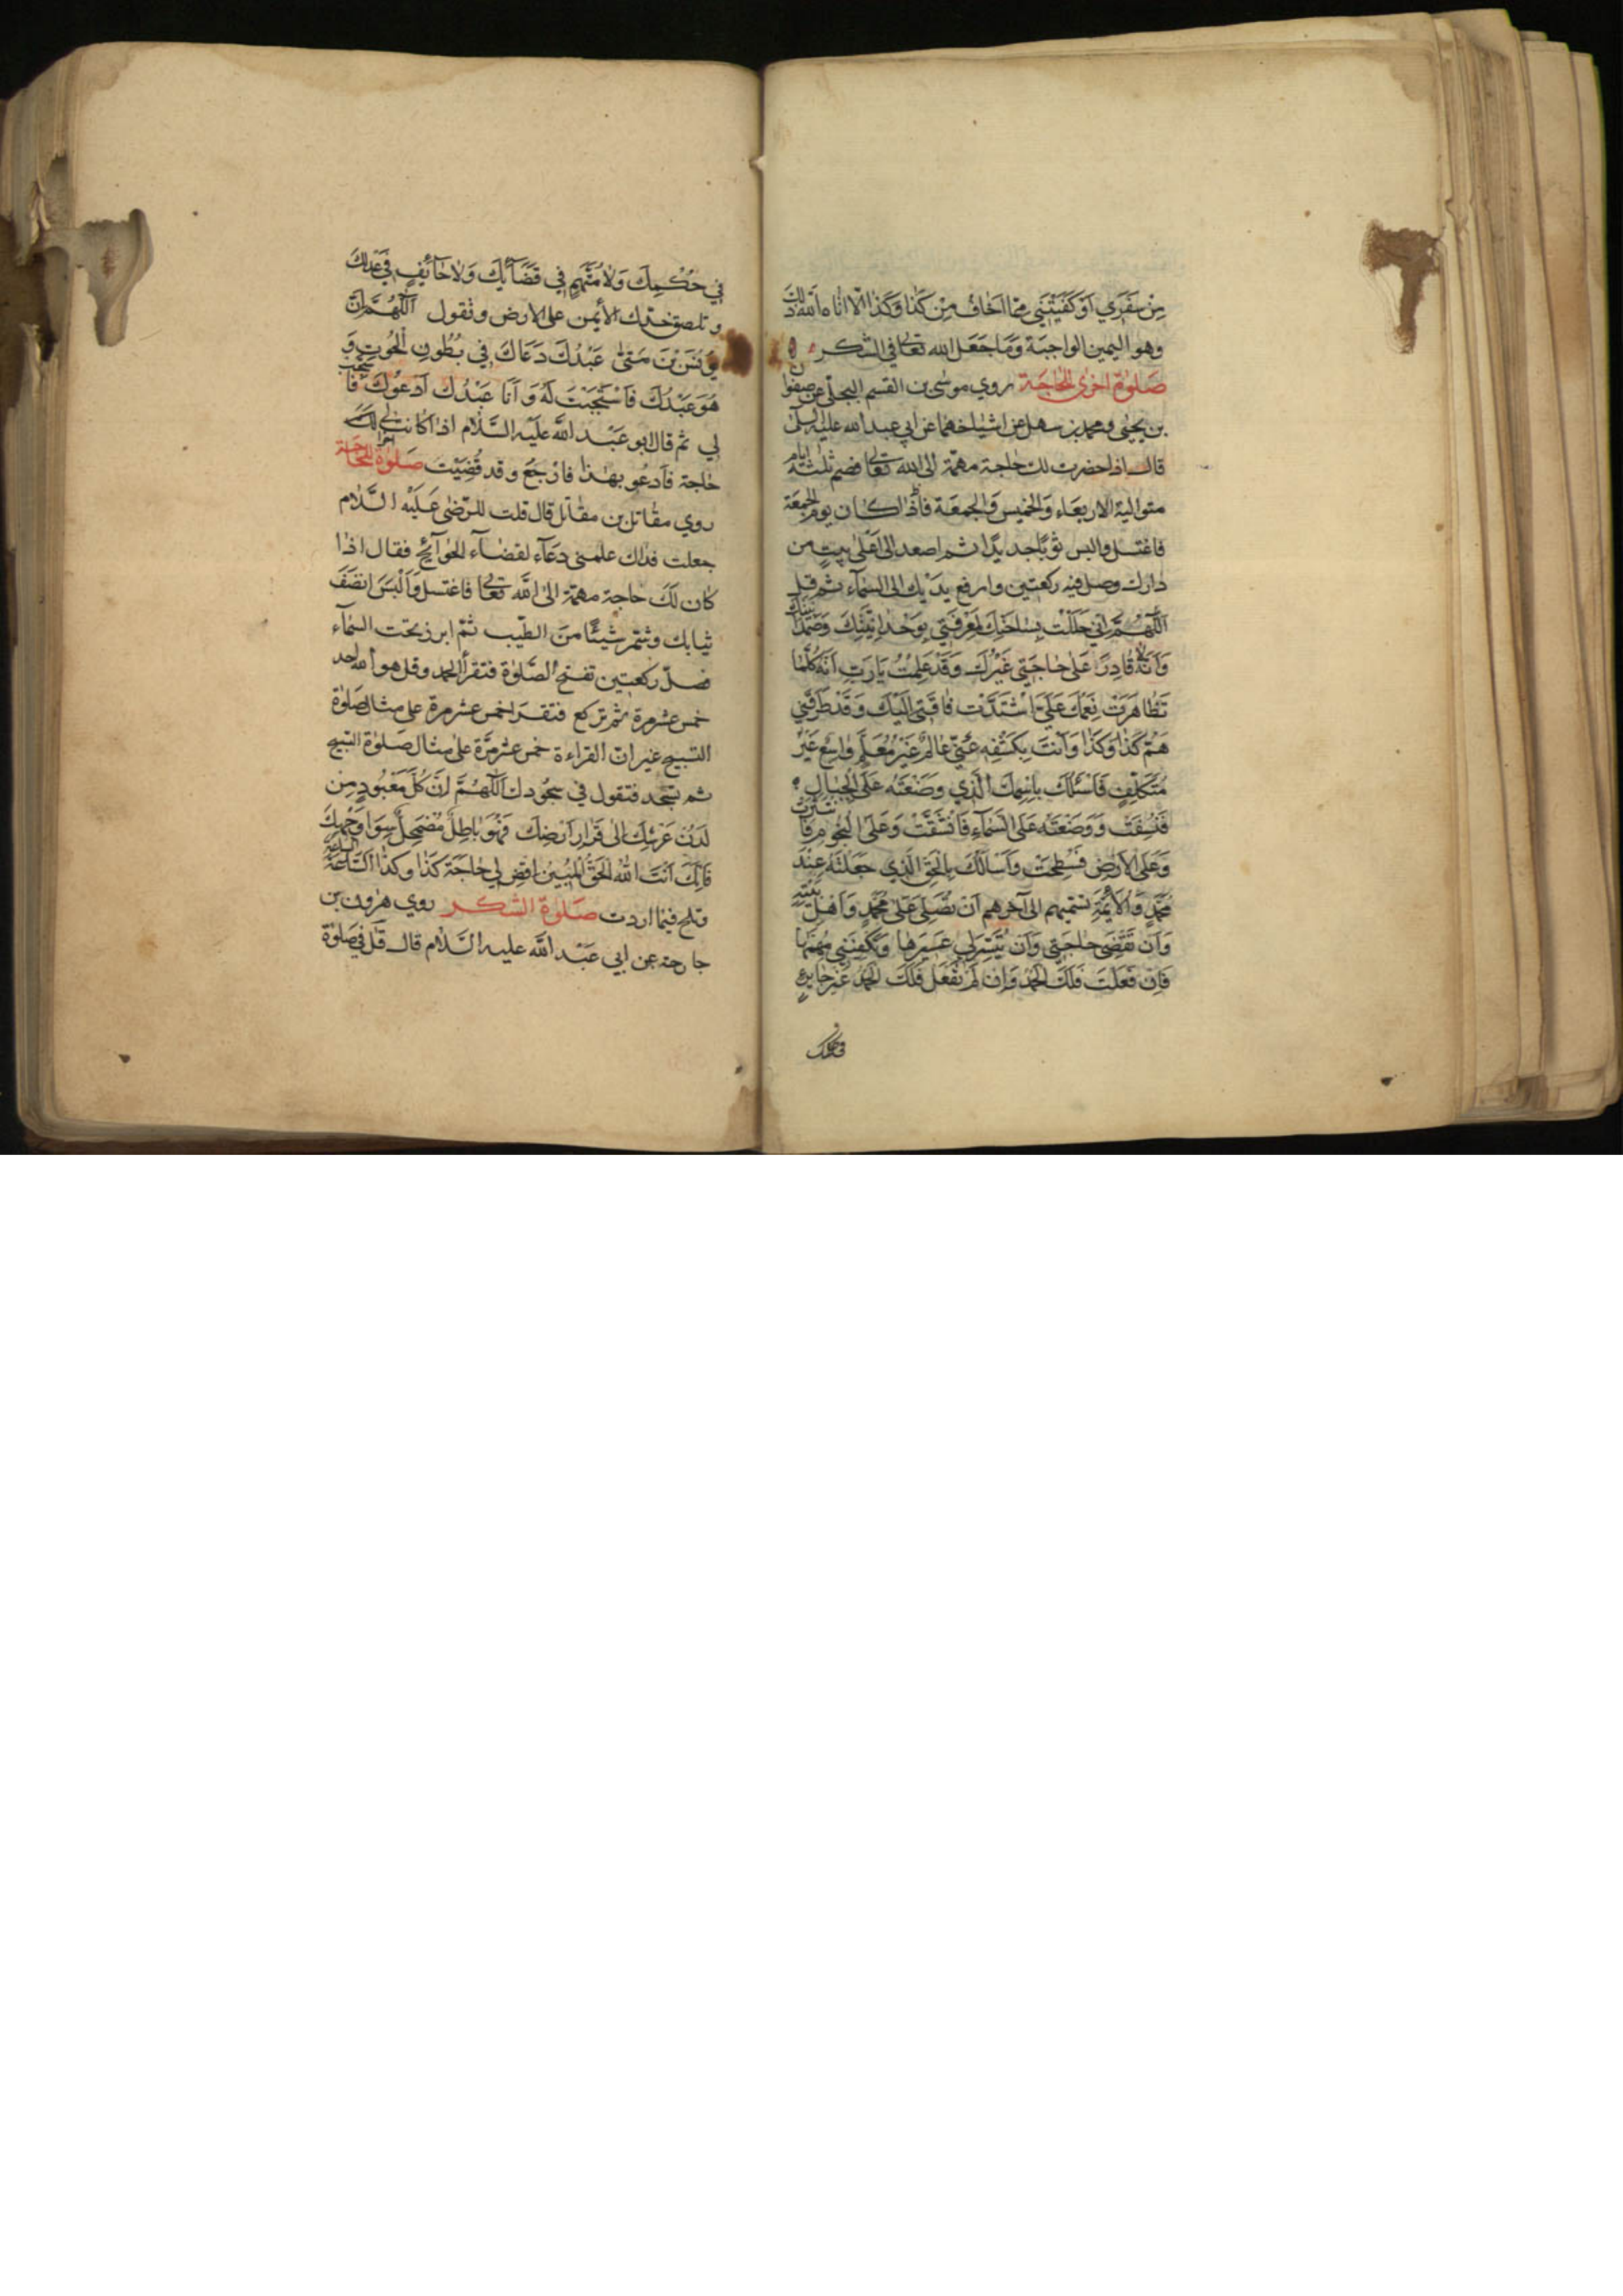 مِن سَفَرِي اَوْ كَفَيْتَنِي مِمّا اَخافُ مِنْ كَذا وَكَذا الّا اتاه الله ذلك
وهو اليمين الواجبة وَمَا جَعَل الله تعالى في الشكر
صَلوٰة اخرى للحاجَة روي موسى بن القسم البجلي عن صفوا
ن بن يحيى ومحمد بن سهل عن اشياخهما عن ابي عبد الله عليه السلام
قال اذا حضرت لك حاجة مهمّة الى الله تعالى فصم ثلثة ايام
متوالية الاربعاء وَالخميس وَالجمعة فاذا كان يوم الجمعة
فاغتسل والبس ثوبًا جديدًا ثم اصعد الى اَعْلى بيتٍ من
دارك وصل فيه ركعتين وارفع يدَيْك الى السّمآء ثم قل
اَللّهُمَّ اِنّي حَلَلْتُ بِسٰاحَتِكَ لِمَعْرِفَتي بِوَحْدٰانِيَّتِكَ وَصَمَدٰانيّتك
وَاَنَّهُ لا قٰادِرًا عَلىٰ حٰاجَتي غَيْرُكَ وَقَدْ عَلِمْتُ يَا رَبِّ اَنَّهُ كُلَّمٰا
تَظٰاهَرَتْ نِعَمُكَ عَلَيَّ اشْتَدَّتْ فٰاقَتي اِلَيْكَ وَقَدْ طَرَقَني
هَمُّ كَذٰا وَكَذٰا وَاَنْتَ بِكَشْفِهِ عَنّي عٰالِمٌ غَيْرُ مُعَلَّمٍ وٰاسِعٌ غَيْرُ
مُتَكَلِّفٍ فَاَسْئَلُكَ بِاسْمِكَ الَّذي وَضَعْتَهُ عَلَى الْجِبٰالِ
فَنُسِفَتْ وَوَضَعْتَهُ عَلَى السَّمٰآءِ فَانْشَقَّتْ وَعَلَى النُّجُومِ فَانْتَثَرَتْ
وَعَلَى الْاَرْضِ فَسُطِحَتْ وَاَسْاَلُكَ بِالْحَقِّ الَّذي جَعَلْتَهُ عِنْدَ
مُحَمَّدٍ وَالْاَئِمَّةِ تسمّيهم الى آخرهم اَنْ تُصَلِّيَ عَلىٰ مُحَمَّدٍ وَاَهْلِ بَيْتِهِ
وَاَنْ تَقْضِيَ حٰاجَتي وَاَنْ تُيَسِّرَ لي عَسيرَهٰا وَتَكْفِيَني مُهِمَّهٰا
فَاِنْ فَعَلْتَ فَلَكَ الْحَمْدُ وَاِنْ لَمْ تَفْعَلْ فَلَكَ الْحَمْدُ غَيْرَ جٰائِرٍ
في حكمك
في حُكْمِكَ وَلٰا مُتَّهَمٍ في قَضٰآئِكَ وَلٰا حٰآئِفٍ في عَدْلِكَ
وتلصق خدّك الأيمن على الارض وتقول اَللّٰهُمَّ اِنَّ
يُونُسَ بْنَ مَتىّٰ عَبْدُكَ دَعَاكَ في بُطُونِ الْحُوتِ وَ
هُوَ عَبْدُكَ فَاسْتَجَبْتَ لَهُ وَاَنَا عَبْدُكَ اَدْعُوكَ فَاسْتَجِبْ
لي ثم قال ابو عَبْد الله علَيْه السَّلٰام اذا كانت لك
حٰاجة فَادعُو بهٰذا فارْجعُ وقد قُضِيَتْ صَلوٰة اخرى للحاجَة
روي مقٰاتل بن مقٰاتل قال قلت للرّضٰى عَلَيْه السَّلٰام
جعلت فداك علمني دعَآء لقضٰآء الحوآئج فقال اذا
كان لَكَ حٰاجة مهمّة الىٰ الله تعالى فاغتسل وَالْبَسَ انظفَ
ثيابك وشمّ شيئًا من الطّيب ثمّ ابرز تحت السّمآء
فصلّ ركعتين تفتتح الصَّلوٰة فتقرأ الحمد وقل هو الله احد
خمس عشر مرة ثم تركع فتقرا خمس عشر مرة على مثال صَلوٰة
التسبيح غير انّ القراءة خمس عشر مرّة على مثال صَلوٰة التسبيح
ثم تسجد فتقول في سجودك اَللّهُمَّ اِنَّ كُلَّ مَعْبُودٍ مِنْ
لَدُنْ عَرْشِكَ الىٰ قَرٰارِ اَرْضِكَ فَهُوَ بٰاطِلٌ مُضْمَحِلٌّ سِوٰا وَجْهِكَ
فَاِنَّكَ اَنْتَ اللهُ الْحَقُّ الْمُبينُ اقْضِ لي حٰاجَةَ كَذٰا وكذٰا السّٰاعَةَ السّٰاعَةَ
وتلحّ فيما اردت صَلوٰة الشكر روي هٰرون بن
خارجة عن ابي عَبْد الله عليه السَّلٰام قال قٰل في صَلوٰة